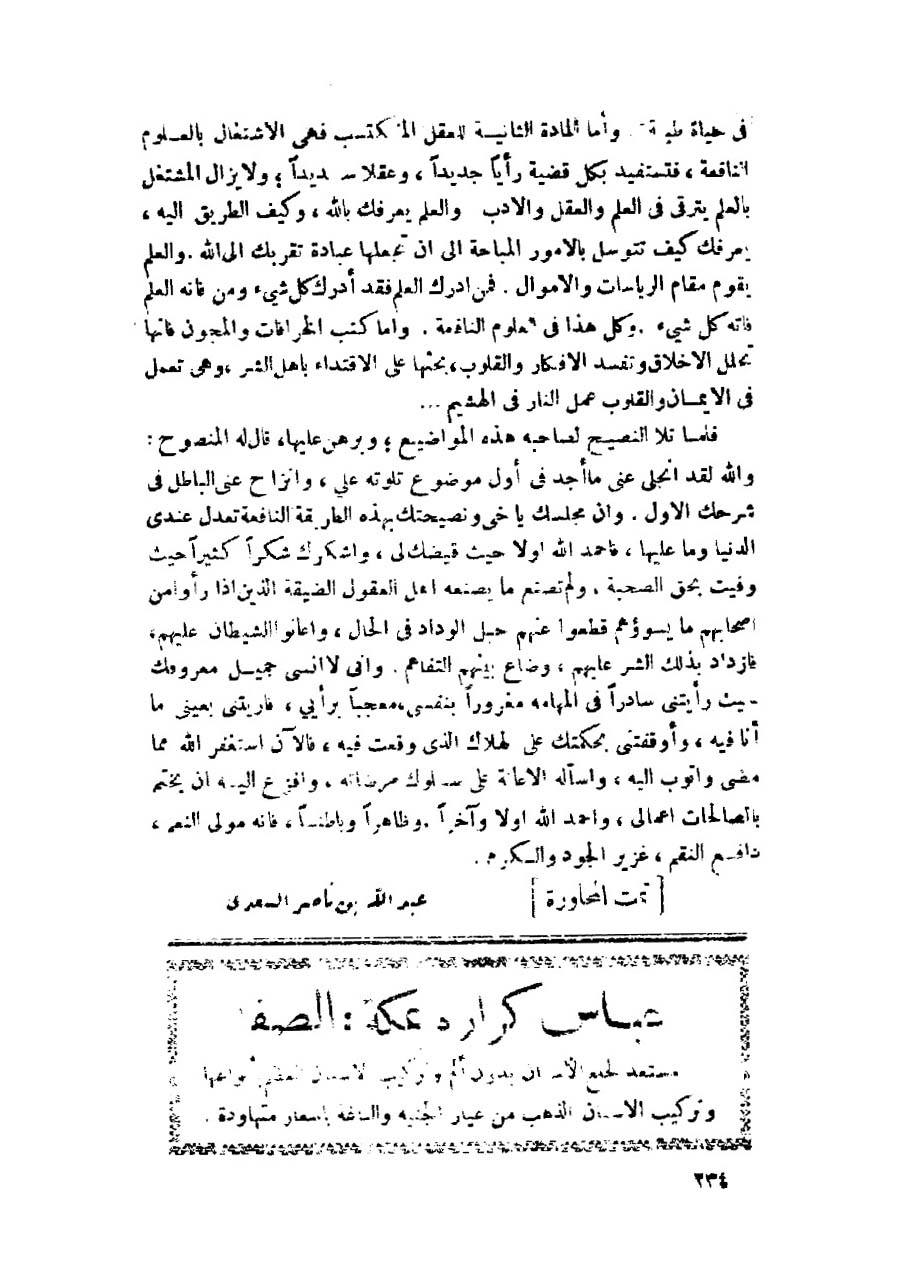 فى حياة طيبة. وأما المادة الثانية للعقل المكتسب فهى الاشتغال بالعلوم
النافعة ، فتستفيد بكل قضية رأياً جديداً ، وعقلا سديداً ؛ ولايزال المشتغل
بالعلم يترقى فى العلم والعقل والادب والعلم يعرفك بالله ، وكيف الطريق اليه ،
يعرفك كيف تتوسل بالامور المباحة الى ان تجعلها عبادة تقربك الى الله . والعلم
يقوم مقام الرياسات والاموال . فمن ادرك العلم فقد أدرك كل شيء ومن فاته العلم
فاته كل شيء . وكل هذا فى العلوم النافعة . واما كتب الخرافات والمجون فانها
تحلل الاخلاق وتفسد الافكار والقلوب ، بحثها على الاقتداء باهل الشر ، وهى تعمل
فى الايمان والقلوب عمل النار فى الهشيم ...
فلما تلا النصيح لصاحبه هذه المواضيع ؛ وبرهن عليها ، قال له المنصوح :
والله لقد انجلى عنى ما أجد فى أول موضوع تلوته على ، وانزاح عنى الباطل فى
شرحك الاول . وان مجلسك يا خى ونصيحتك بهذه الطريقة النافعة تعدل عندى
الدنيا وما عليها ، فاحمد الله اولا حيث قيضك لى ، واشكرك شكراً كثيراً حيث
وفيت بحق الصحبة . ولم تصنع ما يصنعه اهل العقول الضيقة الذين اذا رأوا من
اصحابهم ما يسوؤهم قطعوا عنهم حبل الوداد فى الحال ، واعانوا الشيطان عليهم ،
فازداد بذلك الشر عليهم ، وضاع بينهم التفاهم . وانى لا انسى جميل معروفك
حيث رأيتنى سادراً فى المهامه مغروراً بنفسى ، معجباً برأيي ، فاريتنى بعينى ما
أنا فيه ، وأوقفتنى بحكمتك على الهلاك الذى وقعت فيه ، فالآن استغفر الله مما
مضى واتوب اليه ، واسأله الاعانة على سلوك مرضاته . وافزع اليه ان يختم
بالصالحات اعمالى ، واحمد الله اولا وآخراً . وظاهراً وباطناً ، فانه مولى النعم ،
دافع النقم ، غزير الجود والكرم .
[ تمت المحاورة ] عبد الله بن ناصر السعدى
عباس كرارد بمكة : الصفا
مستعد لخلع الأسنان بدون ألم وتركيب الاسنان العظم بأنواعها
وتركيب الاسنان الذهب من عيار الجنيه والساغة باسعار متهاودة .
٢٣٤